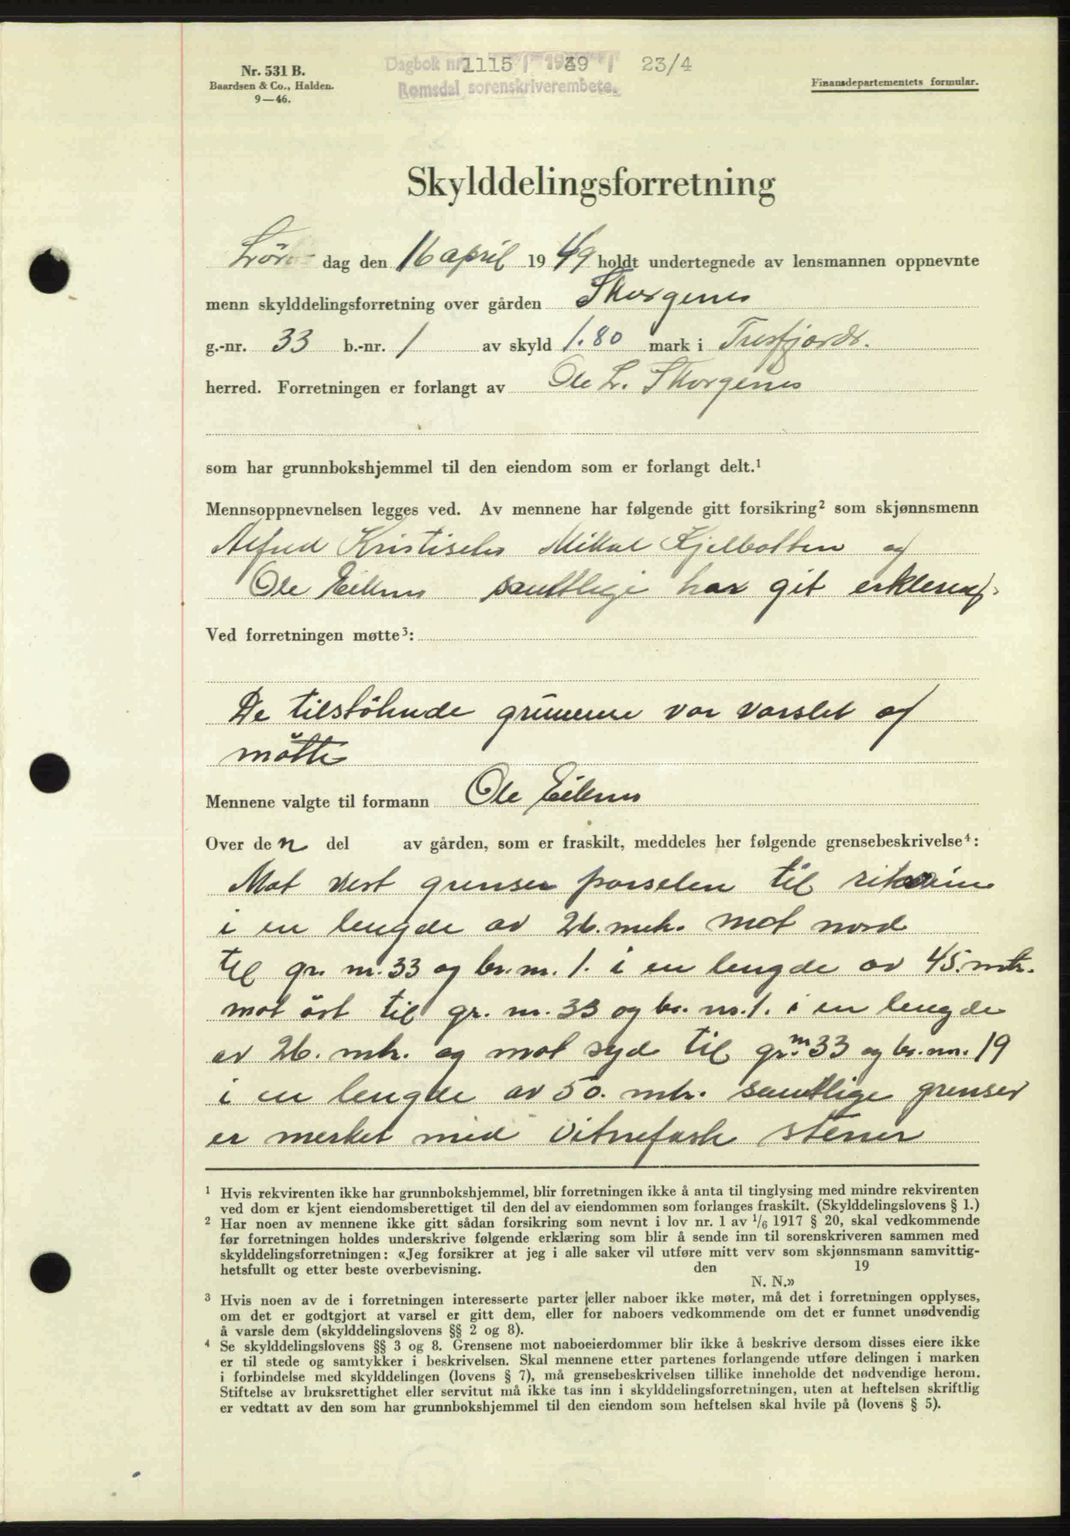 Nr. 531 B.
Baardsen & Co., Halden.
9—46.
Dagbok nr. 1115 / 1949 23/4
Romsdal sorenskriverembete.
Finansdepartementets formular.
Skylddelingsforretning
Lör dag den 16 april 1949 holdt undertegnede av lensmannen oppnevnte
menn skylddelingsforretning over gården Skorgenes
g.-nr. 33 b.-nr. 1 av skyld 1.80 mark i Tresfjord.
herred. Forretningen er forlangt av Ole L. Skorgenes
som har grunnbokshjemmel til den eiendom som er forlangt delt.¹
Mennsoppnevnelsen legges ved. Av mennene har følgende gitt forsikring² som skjønnsmenn
Alfred Mikal Kjelbotten og
Ole samtlige har git
Ved forretningen møtte³:
De tilstöhnde var varslet og
mötte
Mennene valgte til formann Ole
Over den del av gården, som er fraskilt, meddeles her følgende grensebeskrivelse⁴:
Mot vest grenser parselen til
i en lengde av 26. mtr. mot nord
til gr. nr. 33 og br. nr. 1. i en lengde av 45. mtr.
mot öst til gr. nr. 33 og br. nr. 1. i en lengde
av 26. mtr. og mot syd til gr. nr 33 og br. nr. 19
i en lengde av 50. mtr. samtlige grenser
er merket med vitnefaste stener
¹ Hvis rekvirenten ikke har grunnbokshjemmel, blir forretningen ikke å anta til tinglysing med mindre rekvirenten
ved dom er kjent eiendomsberettiget til den del av eiendommen som forlanges fraskilt. (Skylddelingslovens § 1.)
² Har noen av mennene ikke gitt sådan forsikring som nevnt i lov nr. 1 av 1/6 1917 § 20, skal vedkommende
før forretningen holdes underskrive følgende erklæring som blir å sende inn til sorenskriveren sammen med
skylddelingsforretningen: «Jeg forsikrer at jeg i alle saker vil utføre mitt verv som skjønnsmann samvittig-
hetsfullt og etter beste overbevisning. den 19
N. N.»
³ Hvis noen av de i forretningen interesserte parter eller naboer ikke møter, må det i forretningen opplyses,
om det er godtgjort at varsel er gitt dem, eller for naboers vedkommende om det er funnet unødvendig
å varsle dem (skylddelingslovens §§ 2 og 8).
⁴ Se skylddelingslovens §§ 3 og 8. Grensene mot naboeierdommer blir ikke å beskrive dersom disses eiere ikke
er til stede og samtykker i beskrivelsen. Skal mennene etter partenes forlangende utføre delingen i marken
i forbindelse med skylddelingen (lovens § 7), må grensebeskrivelsen tillike inneholde det nødvendige herom.
Stiftelse av bruksrettighet eller servitut må ikke tas inn i skylddelingsforretningen, uten at heftelsen skriftlig
er vedtatt av den som har grunnbokshjemmel til den eiendom som heftelsen skal hvile på (lovens § 5).